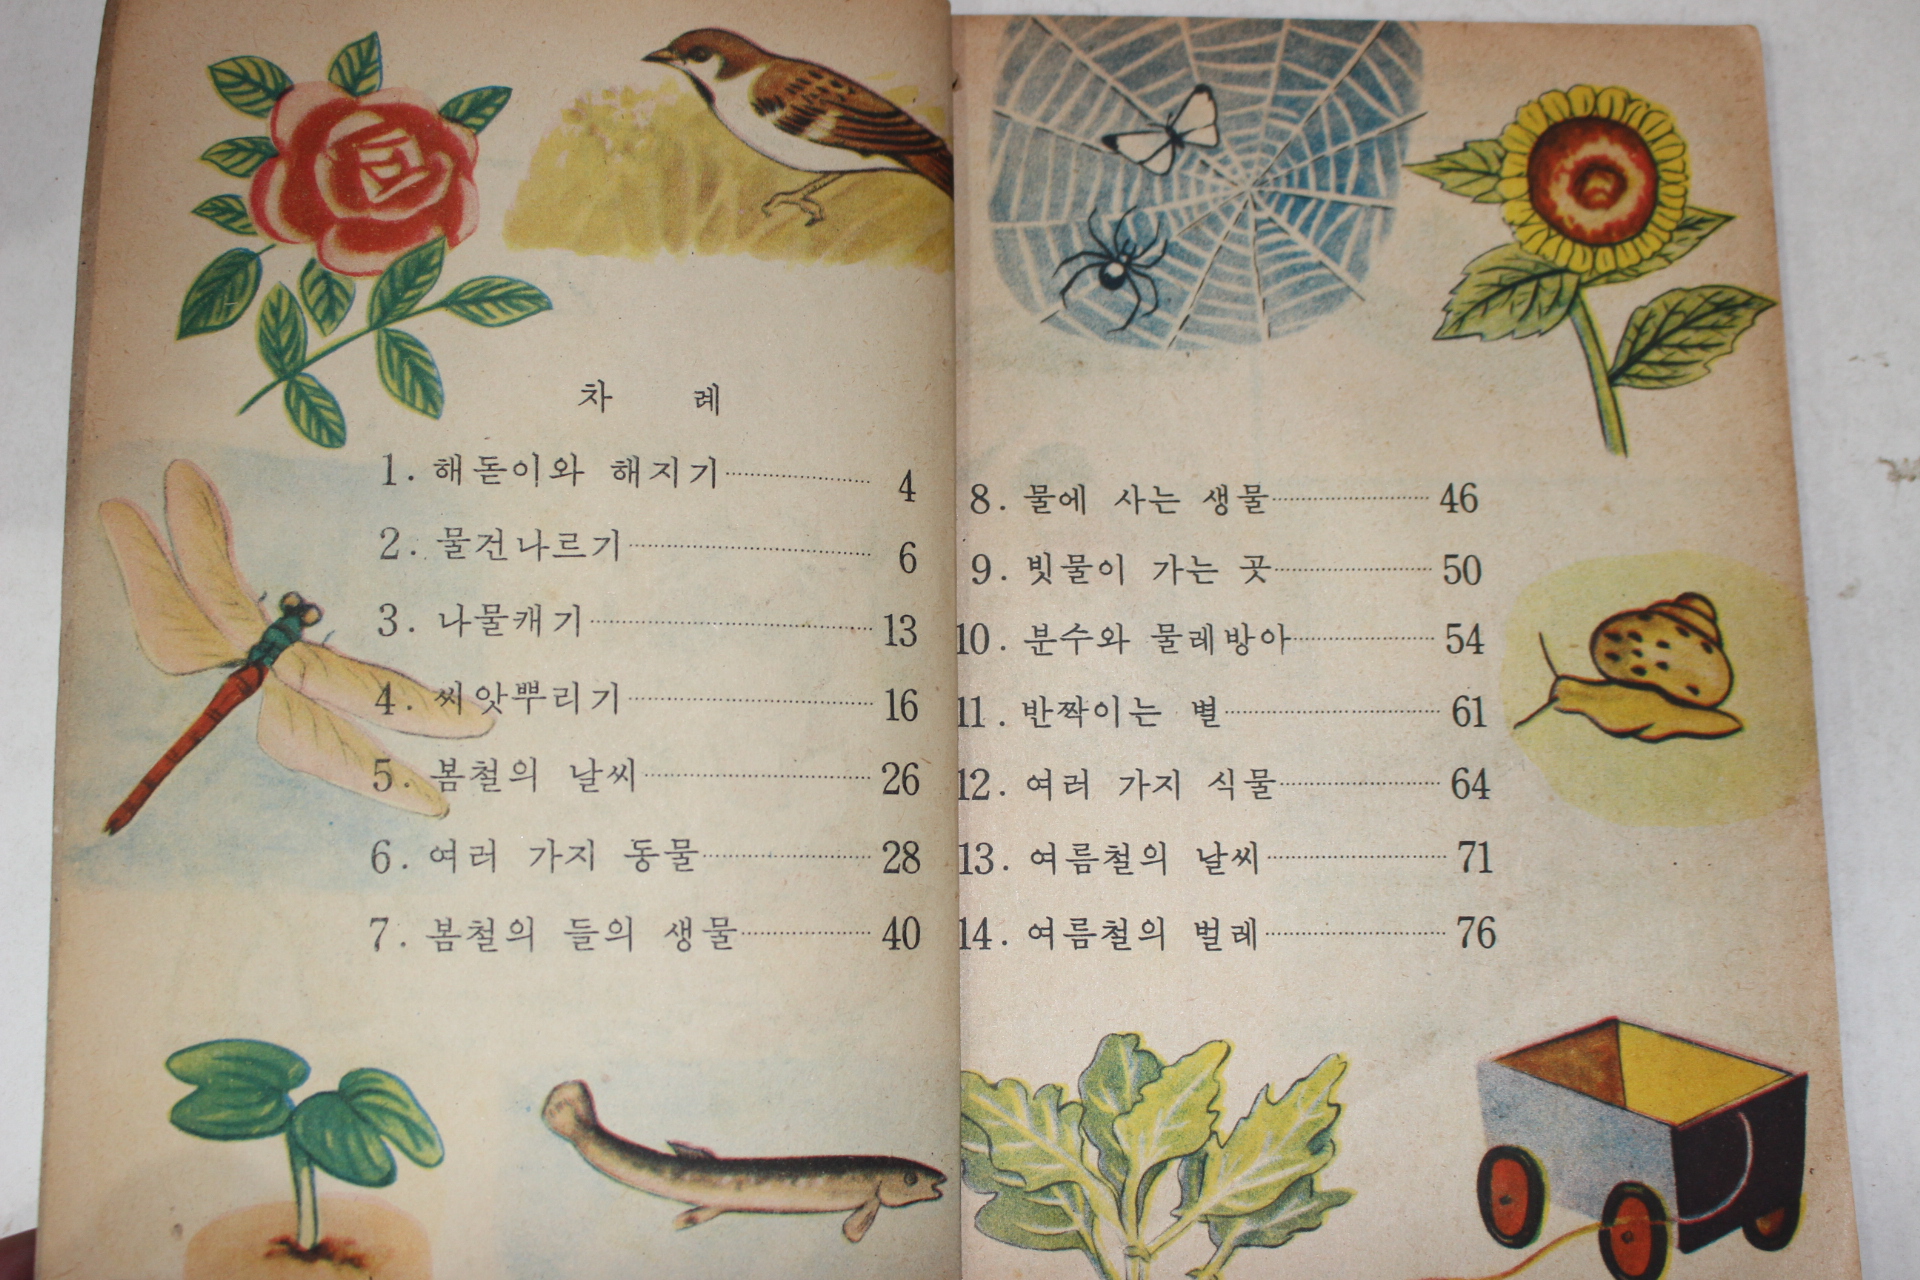 차 례
1. 해돋이와 해지기 4
2. 물건나르기 6
3. 나물캐기 13
4. 씨앗뿌리기 16
5. 봄철의 날씨 26
6. 여러 가지 동물 28
7. 봄철의 들의 생물 40
8. 물에 사는 생물 46
9. 빗물이 가는 곳 50
10. 분수와 물레방아 54
11. 반짝이는 별 61
12. 여러 가지 식물 64
13. 여름철의 날씨 71
14. 여름철의 벌레 76